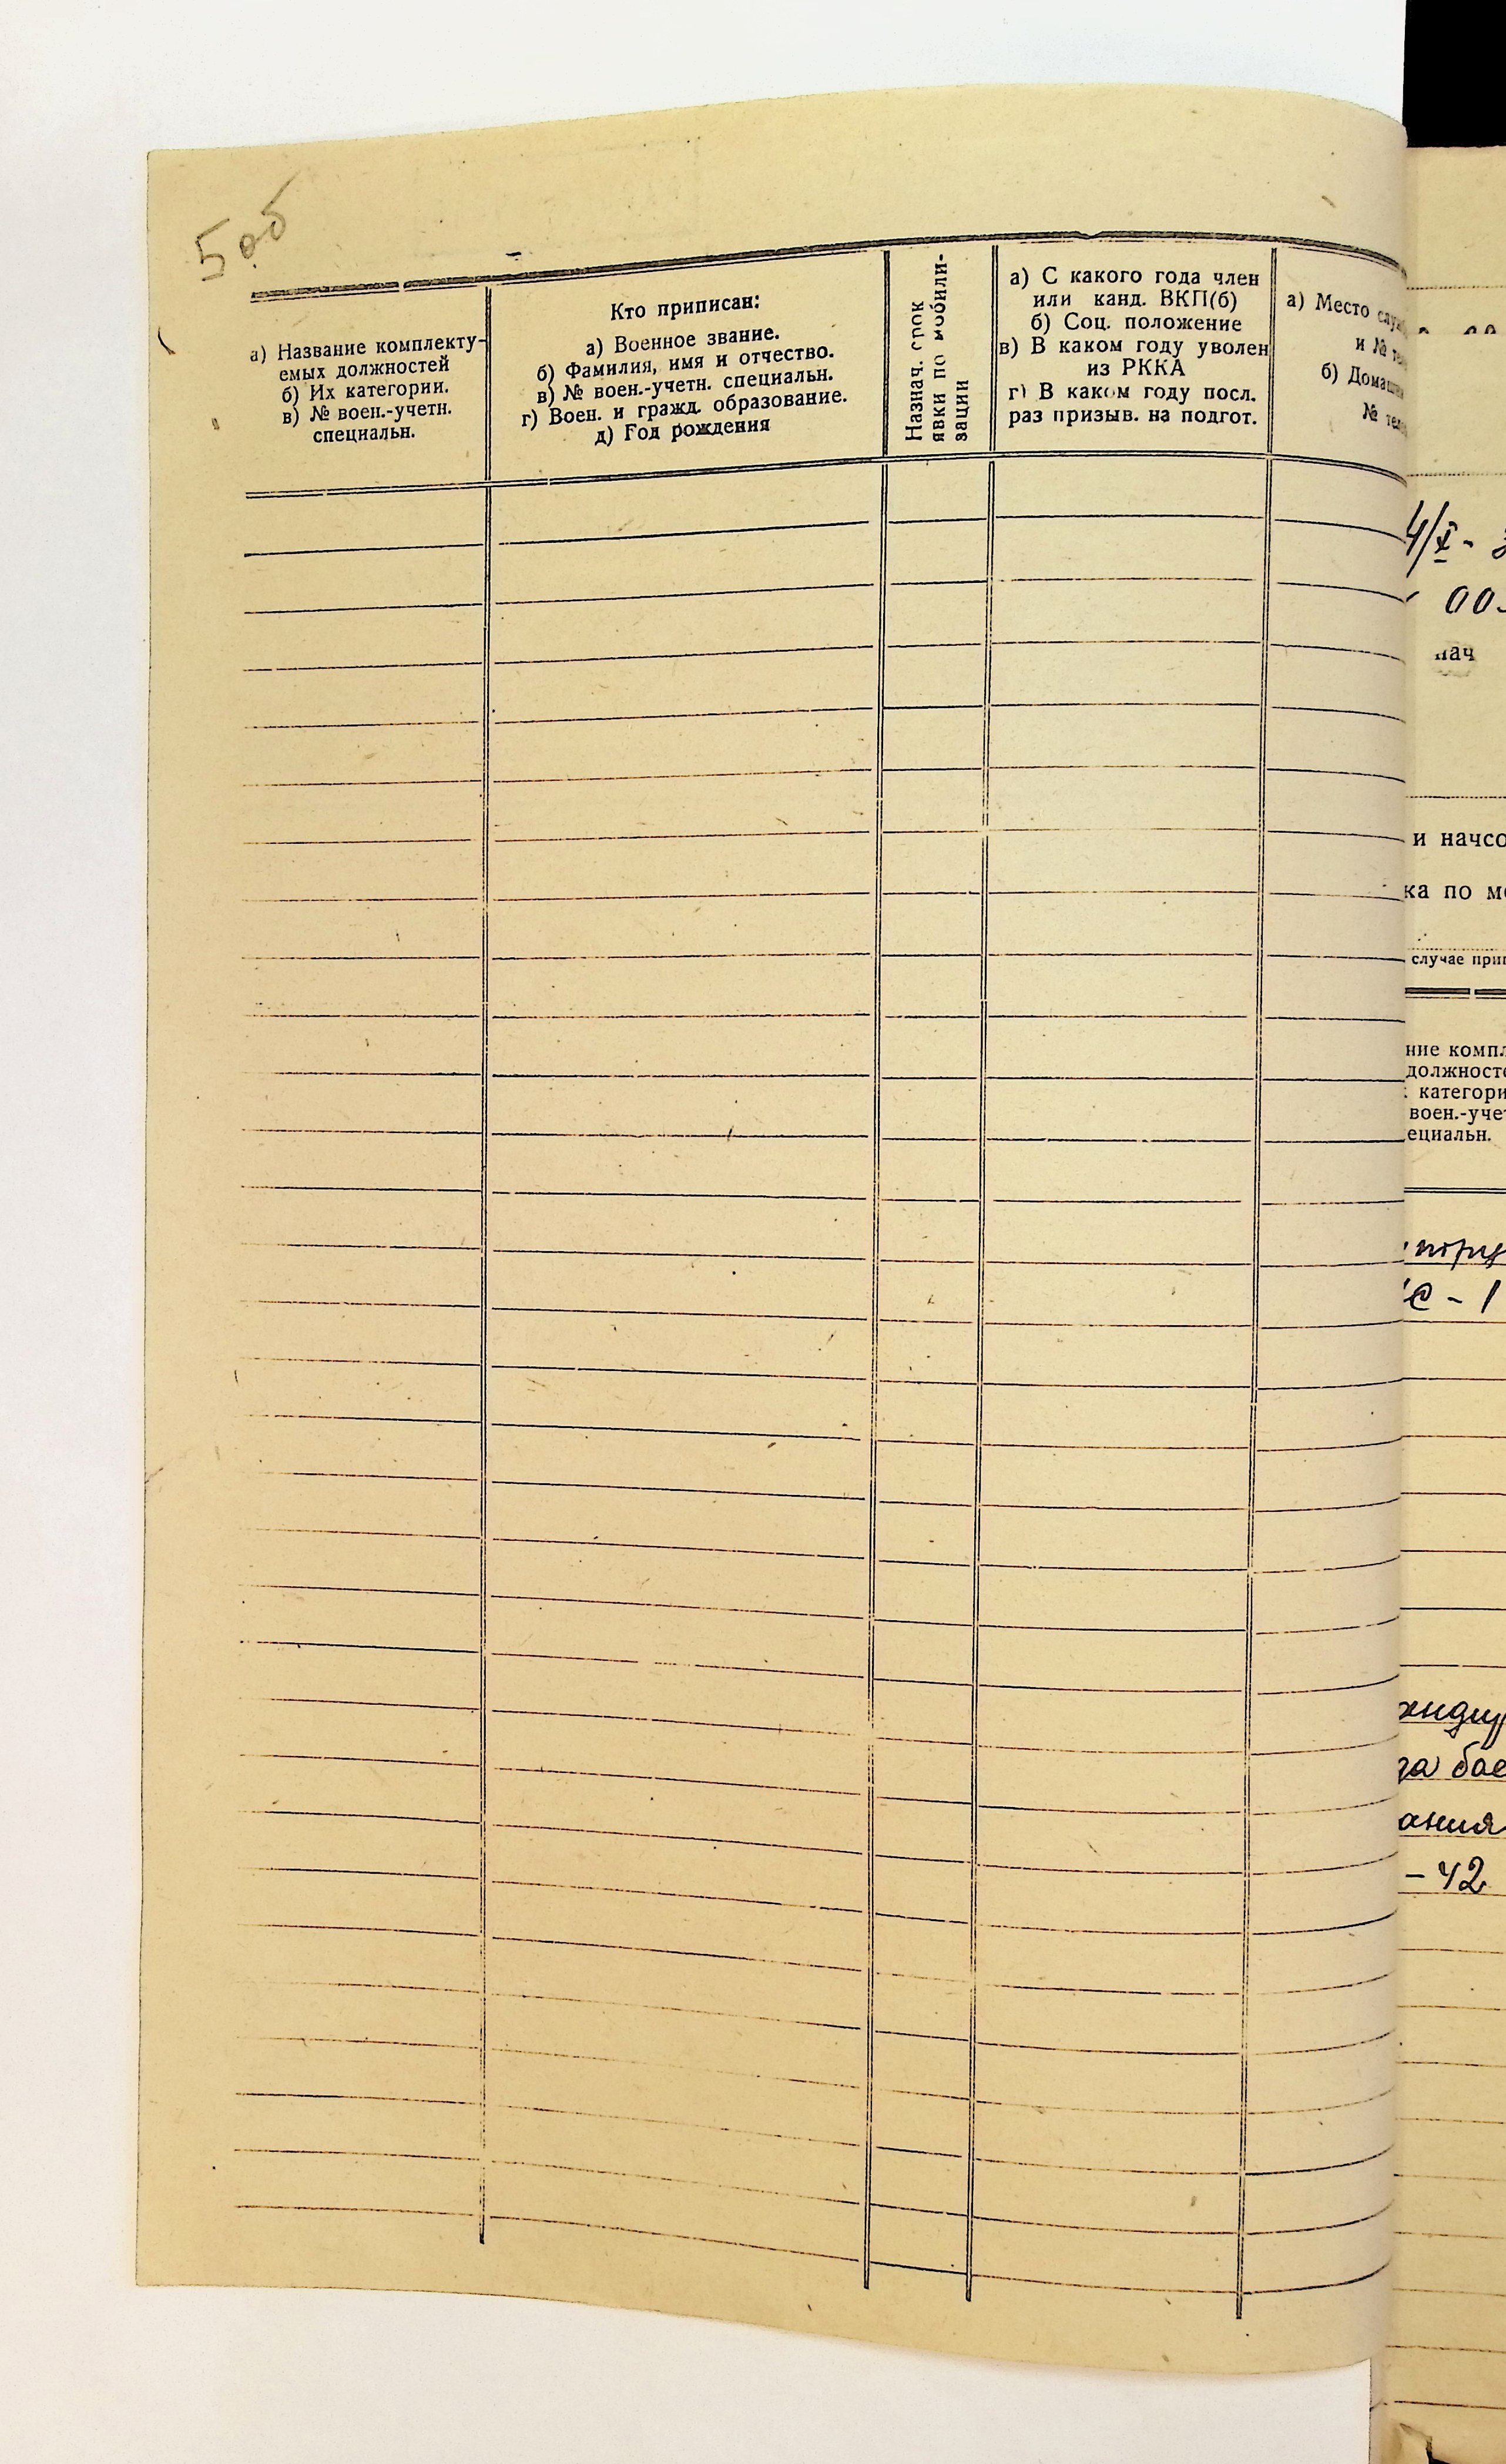 5об
а) Название комплекту-
емых должностей
б) Их категории.
в) № воен.-учетн.
специальн.
Кто приписан:
а) Военное звание.
б) Фамилия, имя и отчество.
в) № воен.-учетн. специальн.
г) Воен. и гражд. образование.
д) Год рождения
Назнач. срок
явки по мобили-
зации
а) С какого года член
или канд. ВКП(б)
б) Соц. положение
в) В каком году уволен
из РККА
г) В каком году посл.
раз призыв. на подгот.
а) Место
и №
б)
№
4/X-
00-
нач
и начсо
ка по
случае
ние компл
категори
воен.-уче
ециальн.
- 1
ания
- 42